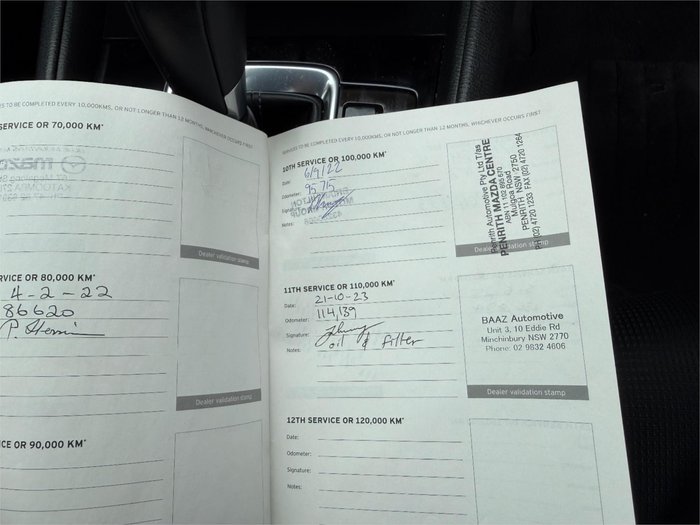 ES TO BE COMPLETED EVERY 10,000KMS, OR NOT LONGER THAN 12 MONTHS, WHICHEVER OCCURS FIRST
SERVICE OR 70,000 KM*
Dealer validation stamp
RVICE OR 80,000 KM*
4-2-22
86620
Dealer validation stamp
CE OR 90,000 KM*
SERVICES TO BE COMPLETED EVERY 10,000KMS, OR NOT LONGER THAN 12 MONTHS, WHICHEVER OCCURS FIRST
10TH SERVICE OR 100,000 KM*
Date: 6/9/22
Odometer:
Signature:
Notes:
Penrith Automotive Pty Ltd T/as
PENRITH MAZDA CENTRE
Mulgoa Road
PENRITH NSW 2750
(02) 4720 1233 FAX (02) 4720 1264
Dealer validation stamp
11TH SERVICE OR 110,000 KM*
Date: 21-10-23
Odometer: 114,139
Signature:
Notes: oil & filter
BAAZ Automotive
Unit 3, 10 Eddie Rd
Minchinbury NSW 2770
Phone: 02 9832 4606
Dealer validation stamp
12TH SERVICE OR 120,000 KM*
Date:
Odometer:
Signature:
Notes: